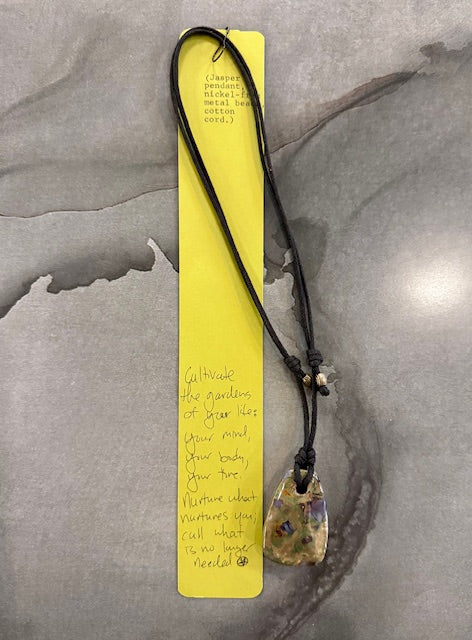 (Jasper
pendant,
nickel-fr
metal bea
cotton
cord.)
Cultivate
the gardens
of your life:
your mind,
your body,
your time.
Nurture what
nurtures you;
cull what
is no longer
needed